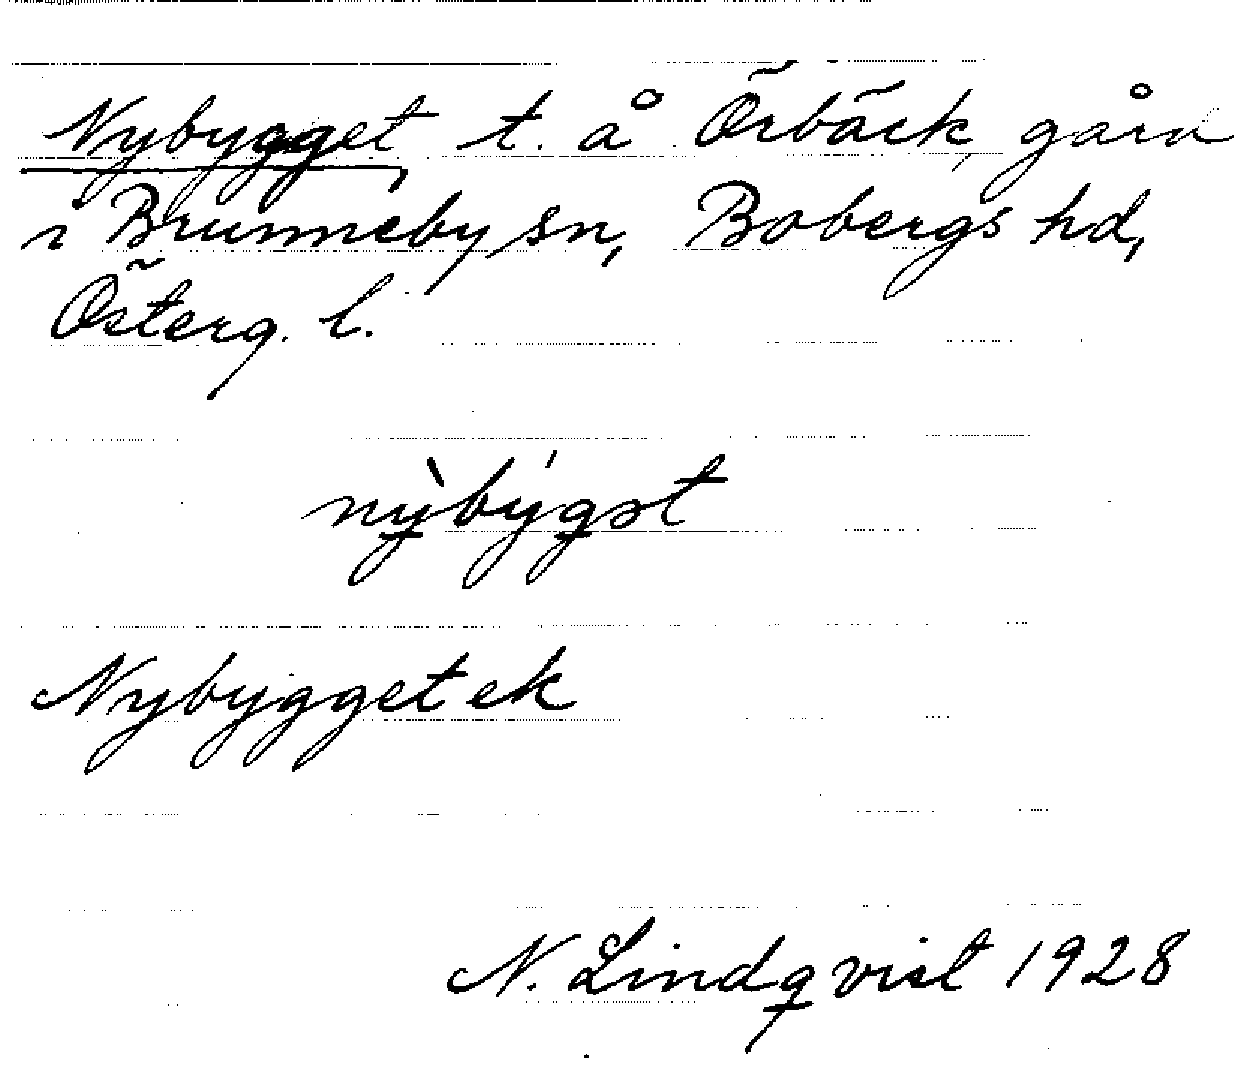 Nybygget, t. å Örbäck, gård
i Brunneby sn, Bobergs hd,
Österg. l.
nỳbýgət
Nybygget ek
N. Lindqvist 1928